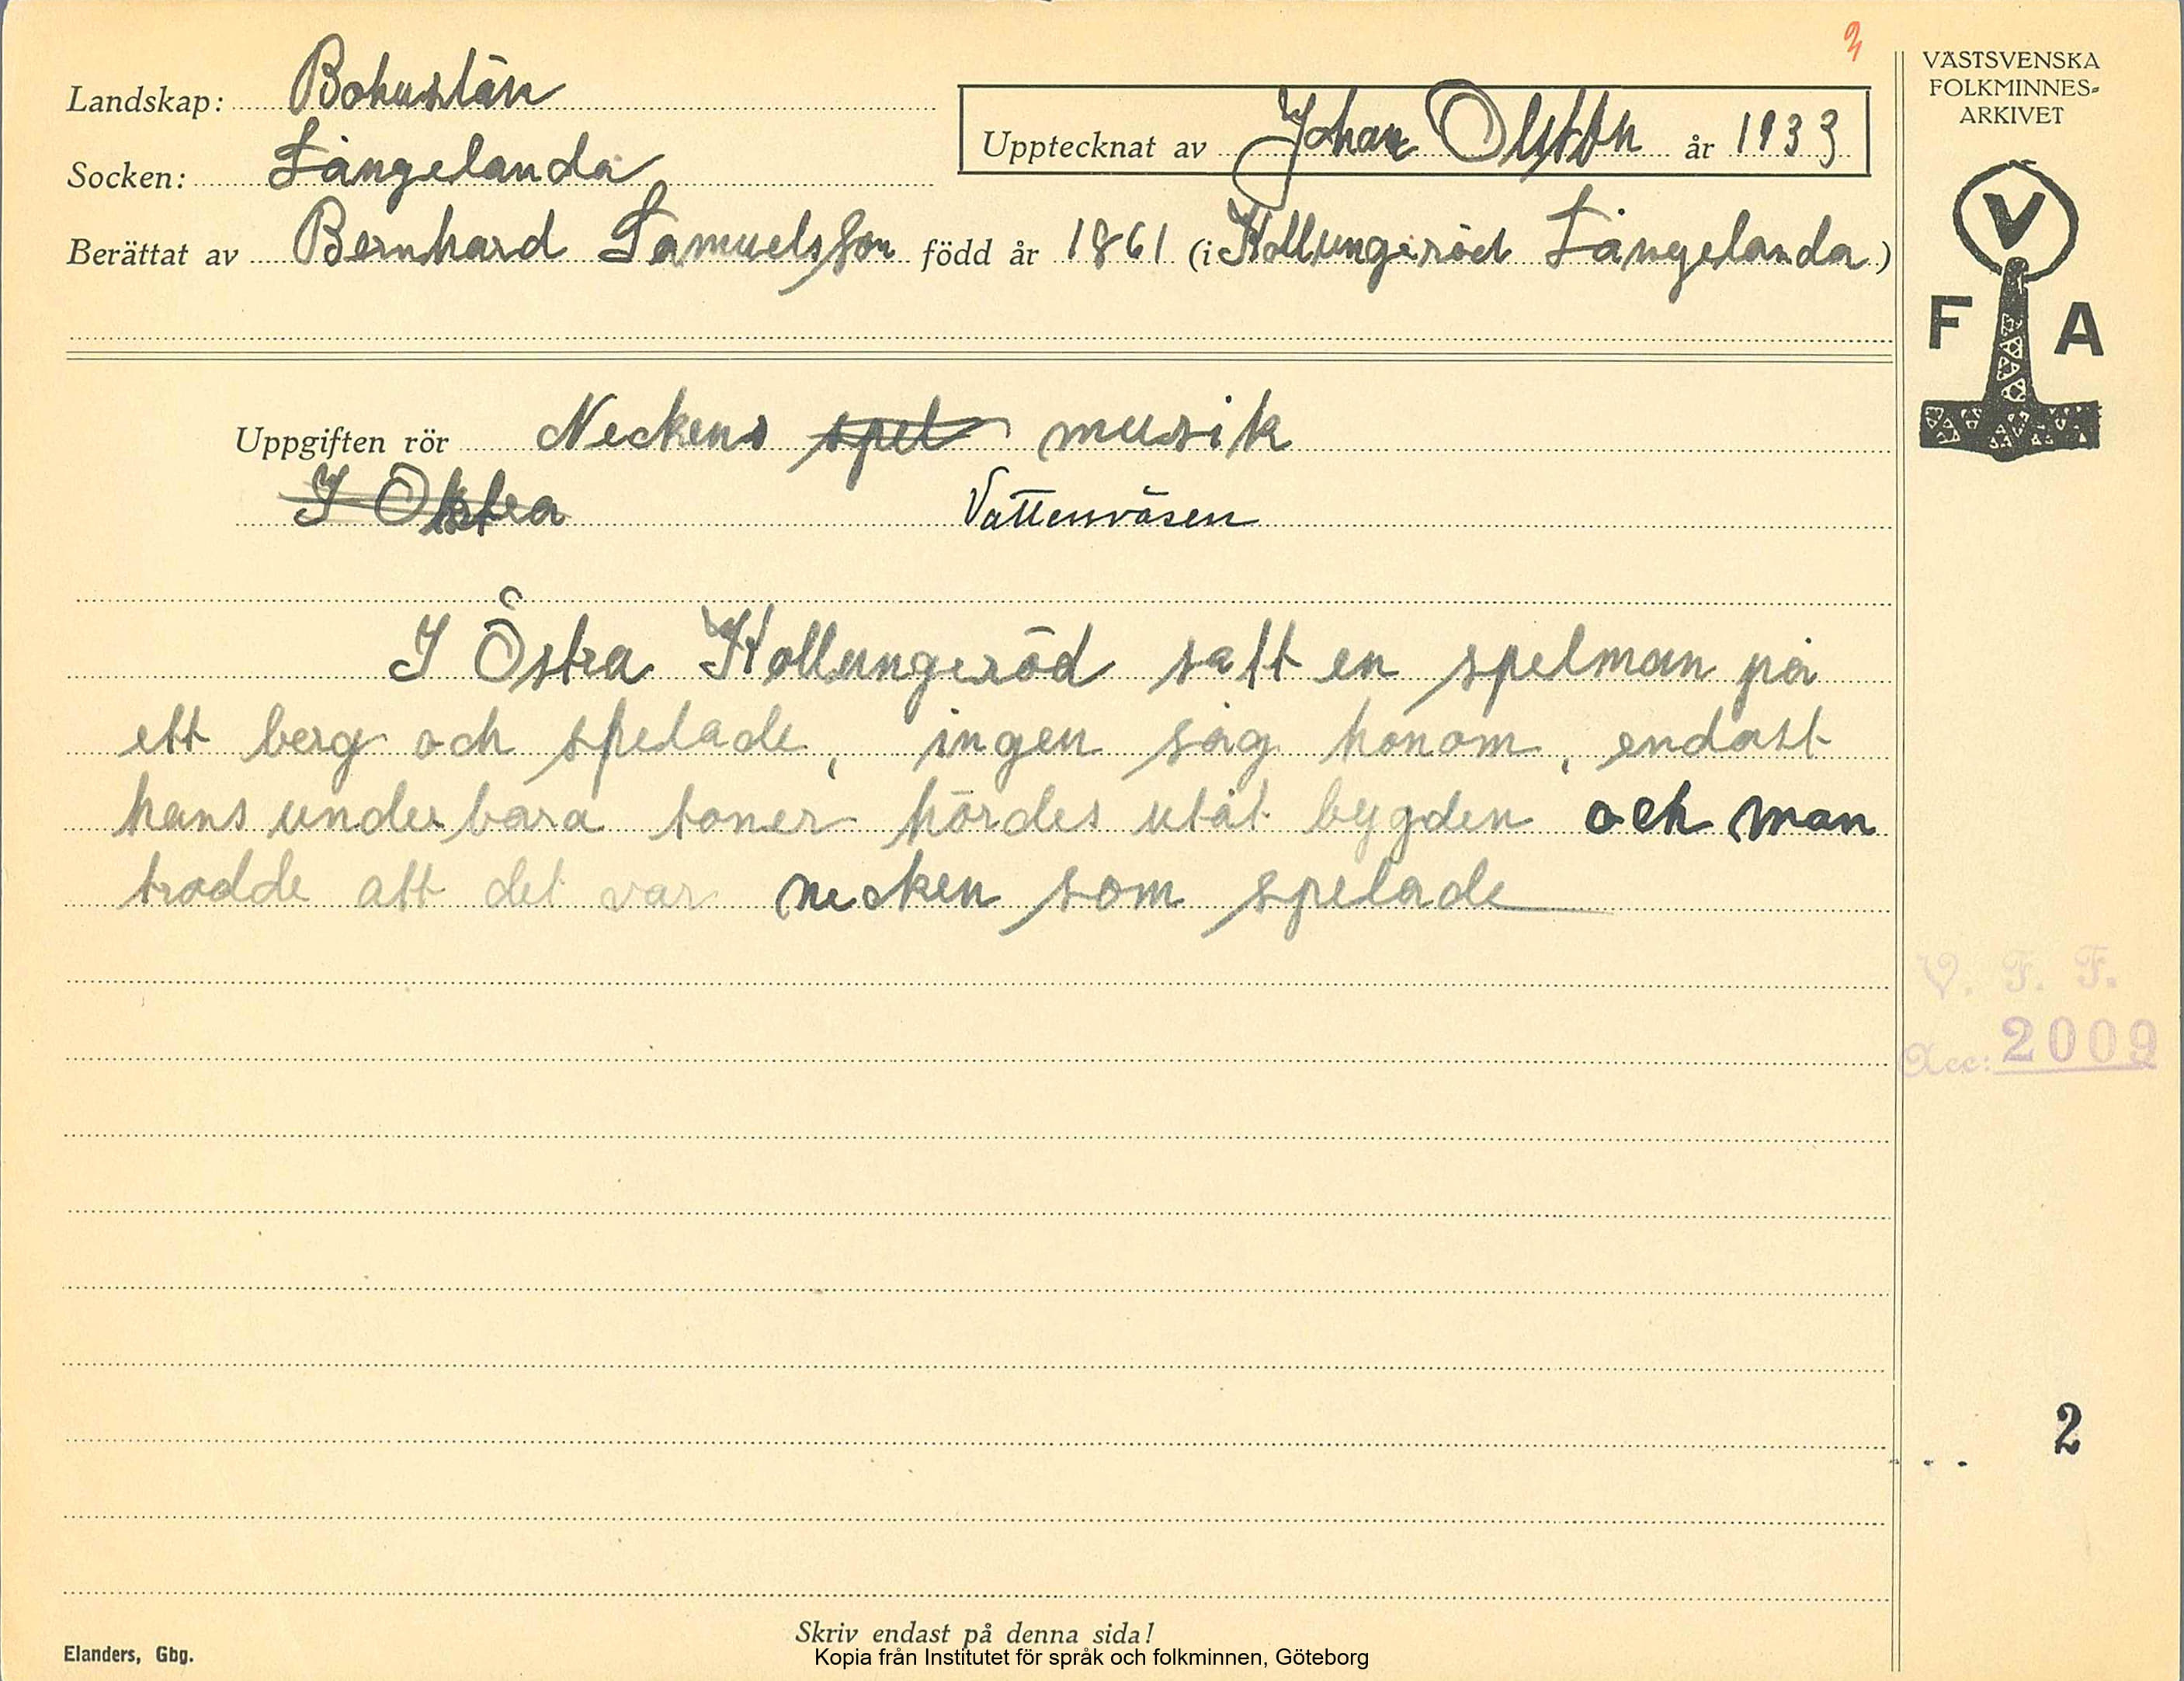 3
VÄSTSVENSKA
FOLKMINNES-
ARKIVET
Landskap: Bohuslän
Upptecknat av Johan Olsson år 1933
Socken: Långelanda
Berättat av Bernhard Samuelsson född år 1861 (i Hollungeröd Långelanda)
V
F A
Uppgiften rör Neckens spel musik
I Östra Vattenväsen
I Östra Hollungeröd satt en spelman på
ett berg och spelade, ingen såg honom, endast
hans underbara toner hördes utåt bygden och man
trodde att det var necken som spelade
V. F. F.
Acc: 2009
2
Skriv endast på denna sida!
Elanders, Gbg.
Kopia från Institutet för språk och folkminnen, Göteborg